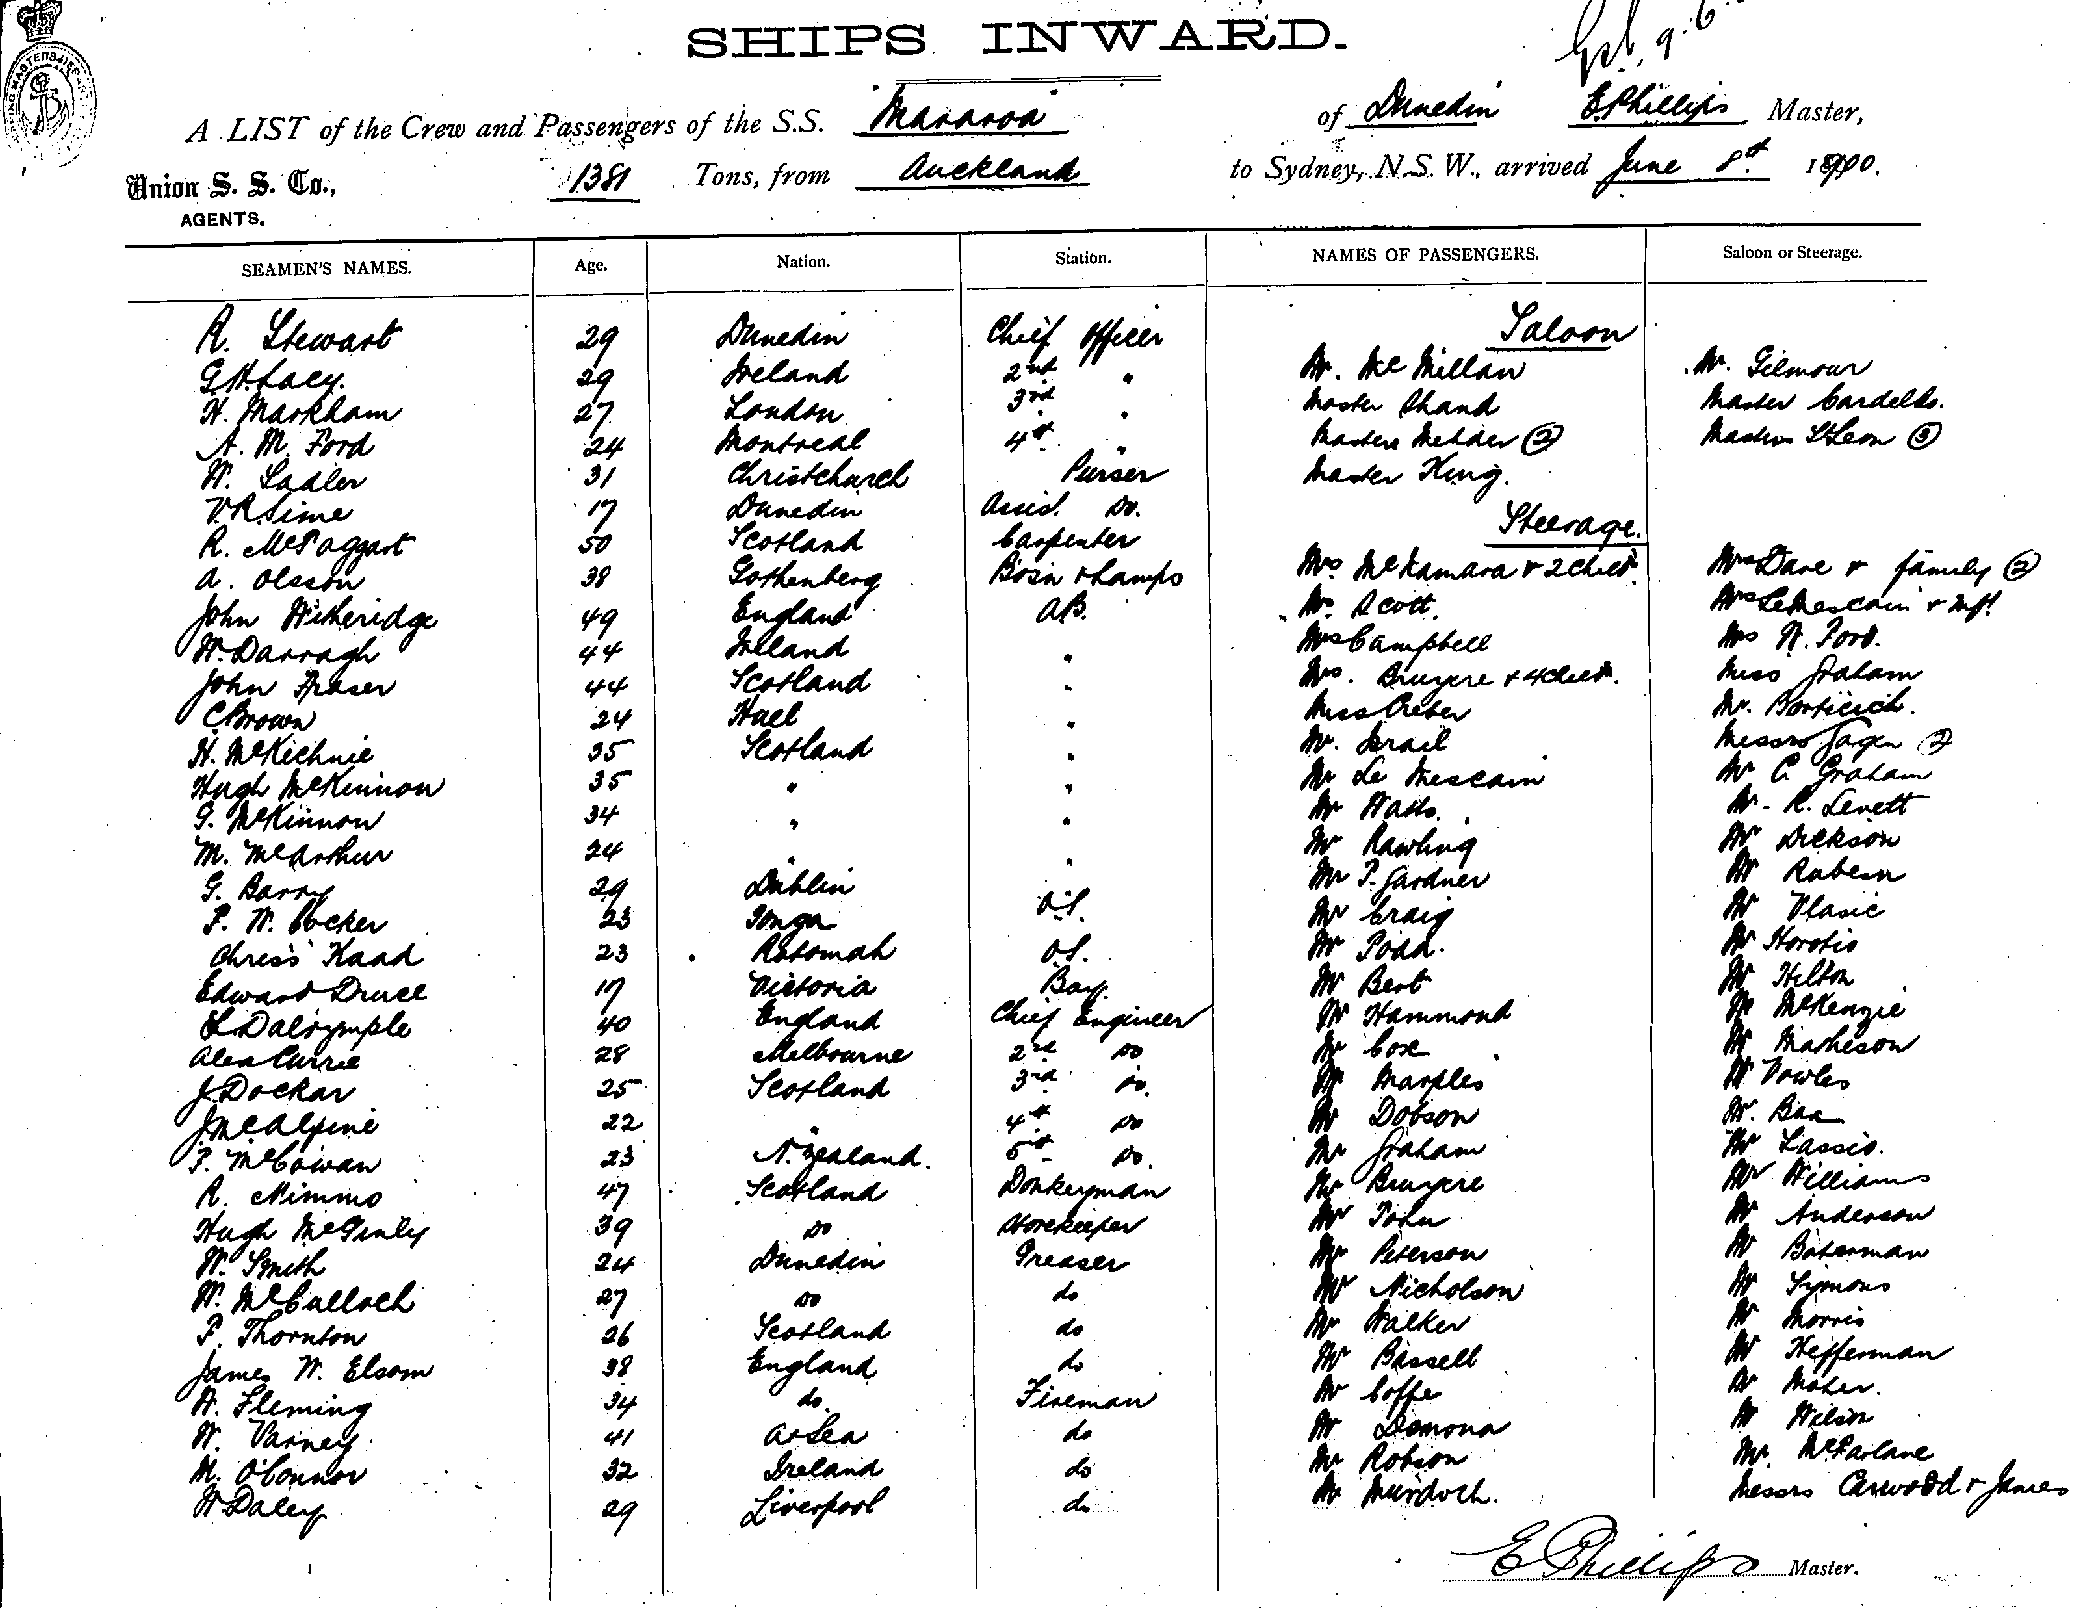 SHIPS INWARD.
A LIST of the Crew and Passengers of the S.S. Mararoa of Dunedin E. Phillips Master,
Union S. S. Co., 1381 Tons, from Auckland to Sydney, N.S.W., arrived June 8th 1900.
AGENTS.
SEAMEN'S NAMES. Age. Nation. Station. NAMES OF PASSENGERS. Saloon or Steerage.
R. Stewart 29 Dunedin Chief Officer Saloon
G.H. Lacy. 29 Ireland 2nd " Mr. McMillan Mr. Gilmour
H. Markham 27 London 3rd " Master Shand Master Cardello.
A. M. Ford 24 Montreal 4th " Masters (2) Masters St Leon (3)
W. Sadler 31 Christchurch Purser Master King.
V.R. Sime 17 Dunedin Assist. Do. Steerage.
R. McTaggart 50 Scotland Carpenter Mrs McNamara & 2 Child. Mrs Dave & family (2)
A. Olsson 38 Gothenberg Bosn & Lamps Mrs. Scott. Mrs LeMescain & Inft
John Witheridge 49 England A.B. Mrs Campbell Mrs W. Ford.
W. Darragh 44 Ireland " Mrs. Bruyere & 4 Child. Miss Graham
John Fraser 44 Scotland " Miss Mr.
C Brown 24 Hull " Mr. Israil Messrs (2)
H. McKechnie 35 Scotland " Mr Le Mescain Mr C. Graham
Hugh McKinnon 35 " " Mr Watts. Mr. R. Levett
G. McKinnon 34 " " Mr Rawling Mr Dickson
M. McArthur 24 " " Mr T. Gardner Mr
G. Barry 29 Dublin Mr Craig Mr Vlasic
P. W. Cocker 23 Tonga O.S. Mr Todd. Mr Horatio
Chriss Kaad 23 Rotomah O.S. Mr Bert Mr Hilton
Edward Druce 17 Victoria Boy Mr Hammond Mr McKenzie
L Dalrymple 40 England Chief Engineer Mr Cox Mr Matheson
Alex Currie 28 Melbourne 2nd Do Mr Marples Mr Vowles
J. Dockar 25 Scotland 3rd Do. Mr Dobson Mr.
J. McAlpine 22 " 4th Do Mr Graham Mr Lassio.
P. McCowan 23 N. Zealand. 5th Do. Mr Bruyere Mr Williams
R. Nimmo 47 Scotland Donkeyman Mr John Mr Anderson
Hugh McGinly 39 Do Storekeeper Mr Peterson Mr Bateman
W. Smith 24 Dunedin Greaser Mr Nicholson Mr Symons
W. McCulloch 27 Do do Mr Walker Mr Morris
P. Thornton 26 Scotland do Mr Bassell Mr Hefferman
James W. Elsom 38 England do Mr Coffe Mr Maher.
W. Fleming 34 do. Fireman Mr Mr Wilson
W. Varney 41 At Sea do Mr Robson Mr. McFarlane
M. O'Connor 32 Ireland do Mr Murdoch. Messrs Carwood & James
W Daley 29 Liverpool do
E Phillips Master.